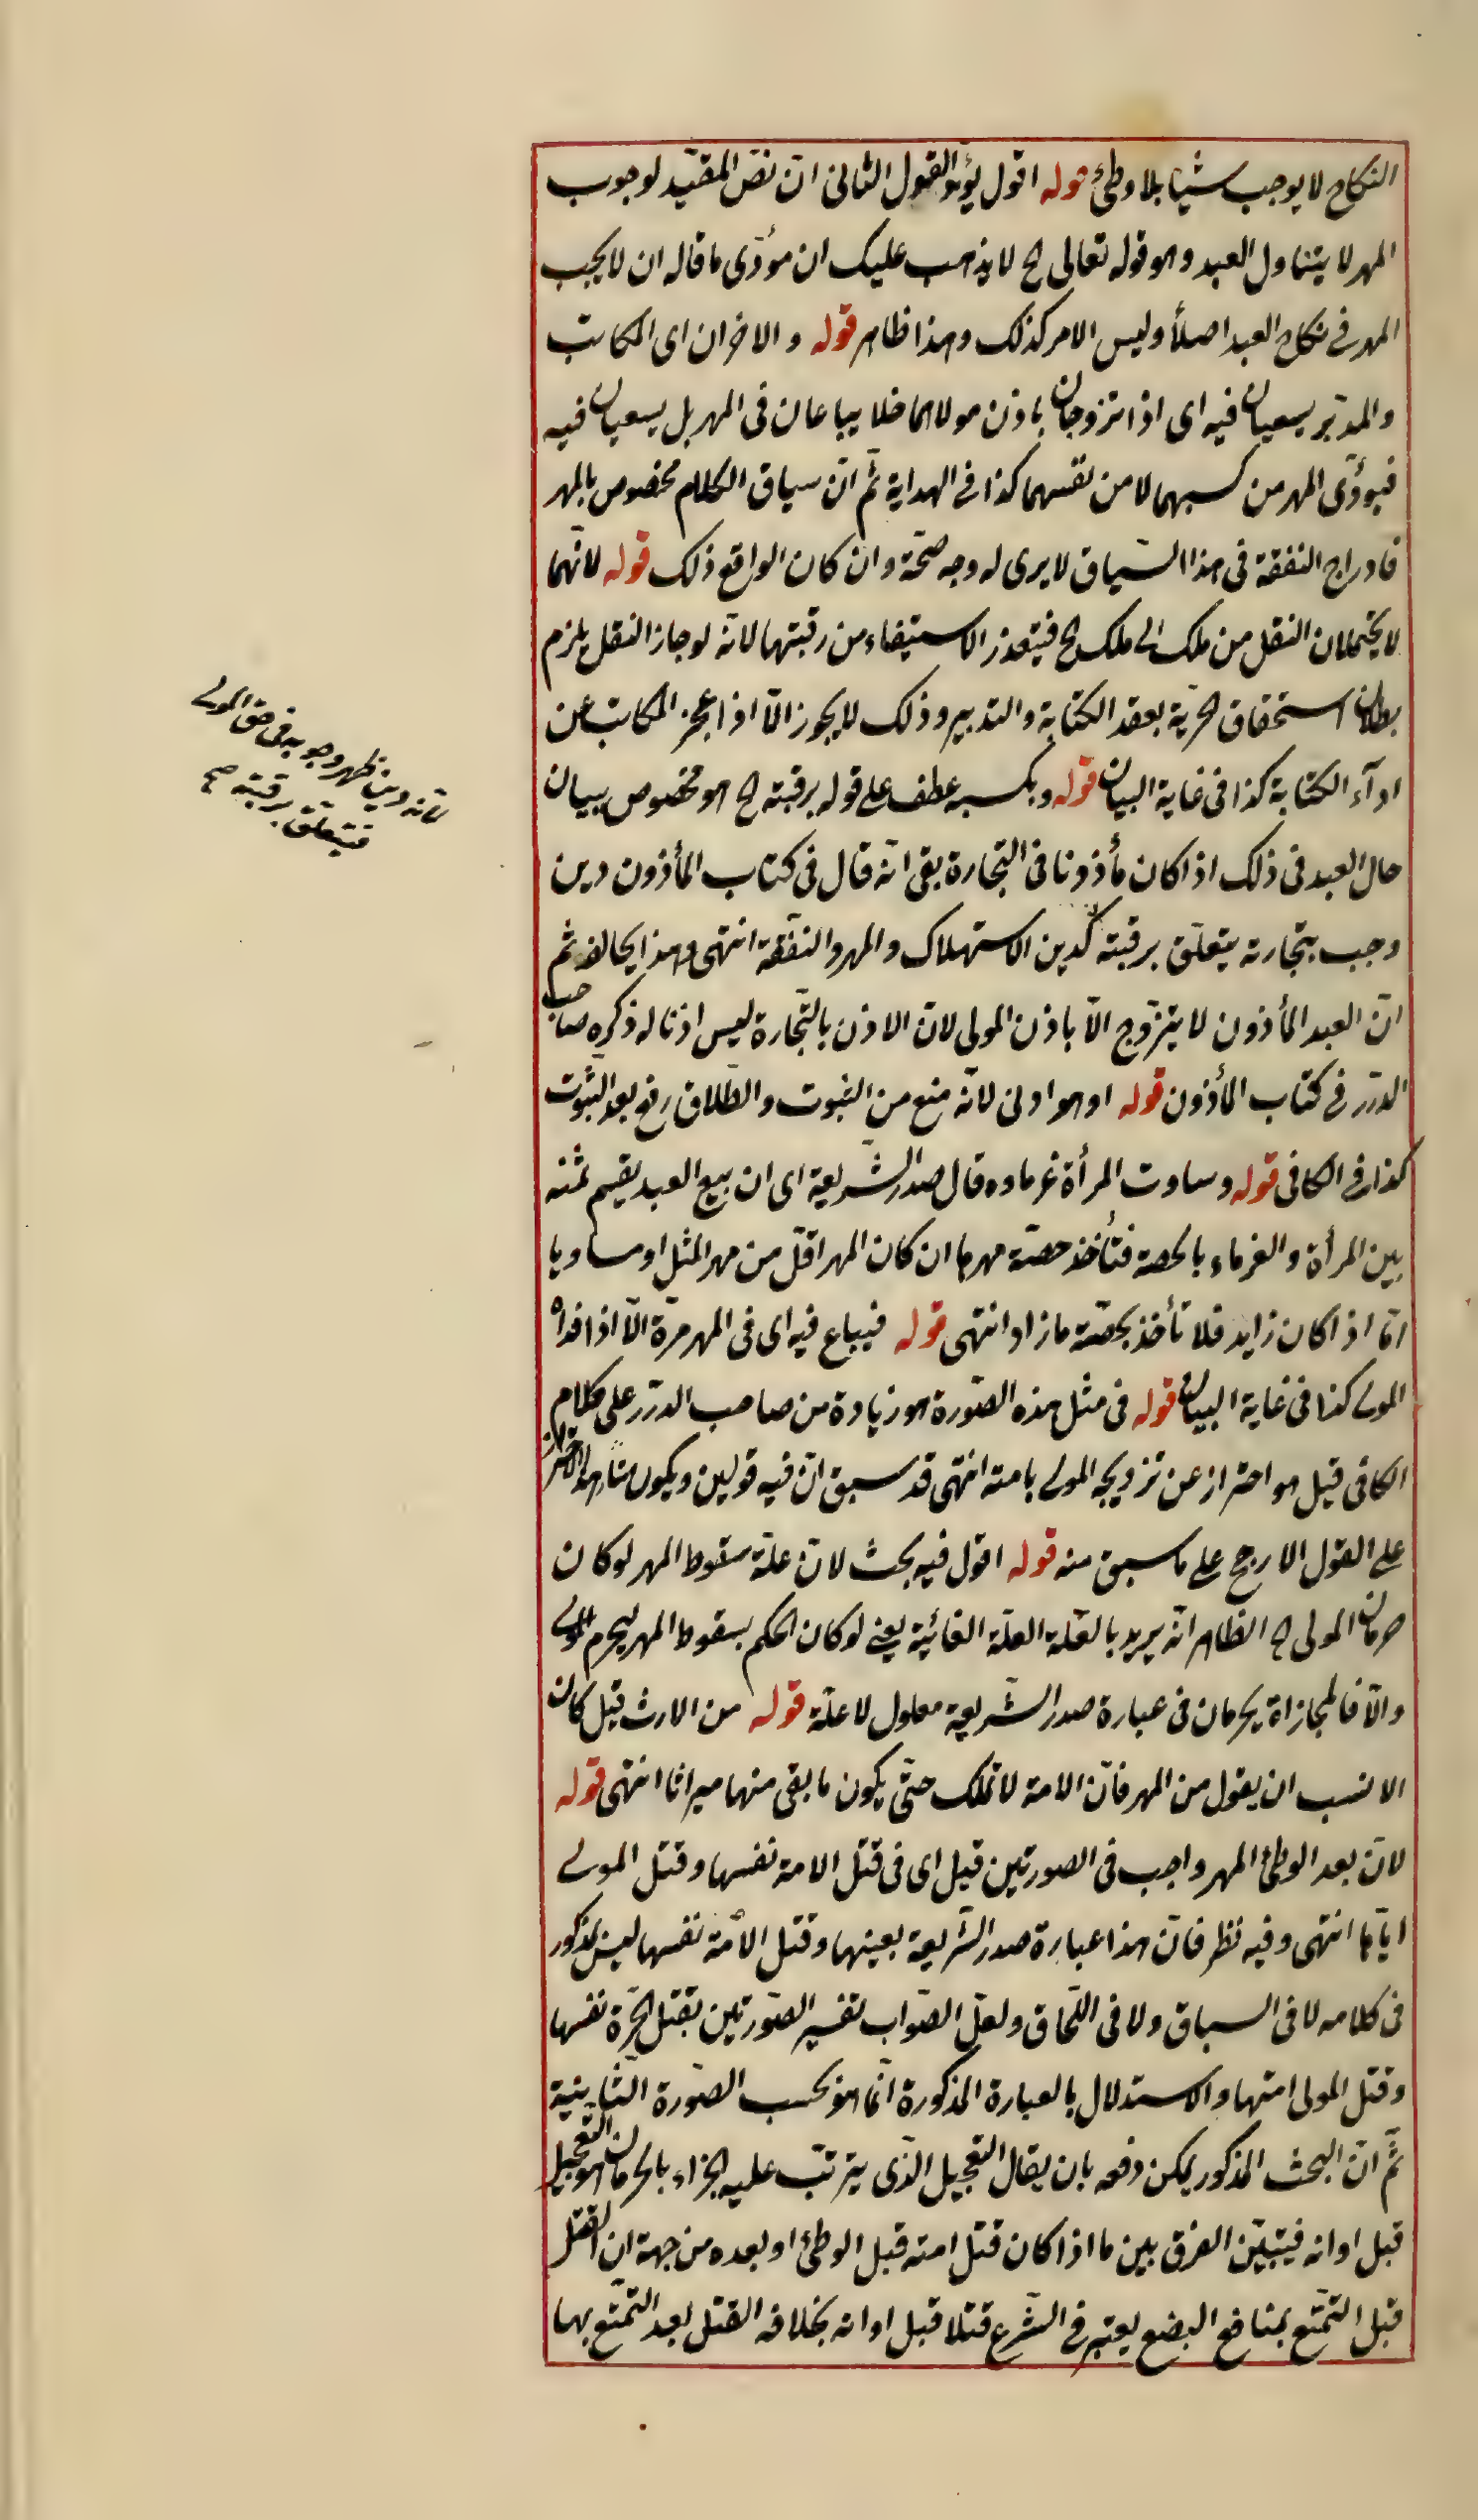 النكاح لا يوجب شيئا بلا وطئ قوله اقول يؤيد القول الثانى انّ نصّ المقيّد لوجوب
المهر لا يتناول العبد وهو قوله تعالى الخ لا يذهب عليك ان مؤدّى ما قاله ان لا يجب
المهر فى نكاح العبد اصلاً وليس الامر كذلك وهذا ظاهر قوله والاخران اى المكاتب
والمدبّر يسعيان فيه اى اذا تزوجان باذن مولاهما فلا يباعان فى المهر بل يسعيان فيه
فيؤدّى المهر من كسبهما لا من نفسهما كذا فى الهداية ثمّ انّ سياق الكلام مخصوص بالمهر
فادراج النفقة فى هذا السّياق لا يرى له وجه صحّة وان كان الواقع ذلك قوله لانّهما
لا يحتملان النقل من ملك الى ملك الخ فيتعذر الاستيفاء من رقبتها لانّه لو جاز النقل يلزم
بطلان استحقاق الحرّية بعقد الكتابة والتدبير وذلك لا يجوز الّا اذا عجز المكاتب عن
ادآء الكتابة كذا فى غاية البيان قوله وبكسبه عطف على قوله برقبته الخ هو مخصوص ببيان
حال العبد فى ذلك اذا كان مأذونا فى التجارة بقى انّه قال فى كتاب المأذون دين
وجب بتجارته يتعلّق برقبته كدين الاستهلاك والمهر والنفقة انتهى وهذا يخالفه ثم
انّ العبد المأذون لا يتزوّج الّا باذن المولى لانّ الاذن بالتّجارة ليس اذنا له ذكره صاحب
الدرر فى كتاب المأذون قوله او هو ادنى لانّه منع من الثبوت والطّلاق رفع بعد الثّبوت
كذا فى الكافى قوله وساوت المرأة غرماءه قال صدر الشّريعة اى ان بيع العبد يقسم ثمنه
بين المرأة والغرماء بالحصة فتأخذ حصّة مهرها ان كان المهر اقلّ من مهر المثل او مساويا
امّا اذا كان زايد فلا تأخذ بحصّة ما زاد انتهى قوله فيباع فيه اى فى المهر مرّة الّا اذا فداه
المولى كذا فى غاية البيان قوله فى مثل هذه الصّورة هو زيادة من صاحب الدرر على كلام
الكافى قيل هو احتراز عن تزويجه المولى بامته انتهى قد سبق انّ فيه قولين ويكون هذا الاحتراز
على القول الارجح على ما سبق منه قوله اقول فيه بحث لانّ علّة سقوط المهر لو كان
حرمان المولى الخ الظاهر انّه يريد بالعلّة العلّة الغائية يعنى لو كان الحكم بسقوط المهر ليحرم المولى
والّا فالمجازاة بحرمان فى عبارة صدر الشّريعة معلول لا علّة قوله من الارث قيل كان
الانسب ان يقول من المهر فانّ الامة لا تملك حتّى يكون ما بقى منها ميراثا انتهى قوله
لانّ بعد الوطئ المهر واجب فى الصورتين قيل اى فى قتل الامة نفسها وقتل المولى
ايّاها انتهى وفيه نظر فانّ هذا عبارة صدر الشّريعة بعينها وقتل الامة نفسها ليس بمذكور
فى كلامه لا فى السباق ولا فى اللّحاق ولعلّ الصّواب تفسير الصّورتين بقتل الحرّة نفسها
وقتل المولى امتها والاستدلال بالعبارة المذكورة انّما هو بحسب الصّورة الثّانية
ثمّ انّ البحث المذكور يمكن دفعه بان يقال التعجيل الّذى يترتّب عليه الجزاء بالحرمان هو التّعجيل
قبل اوانه فيتبيّن الفرق بين ما اذا كان قتل امته قبل الوطئ او بعده من جهة ان القتل
قبل التّمتّع بمنافع البضع يعتبر فى الشّرع قتلا قبل اوانه بخلافه القتل بعد التّمتّع بها
لانّه دين ظهر وجوبه فى حق المولى
فيتعلّق برقبته صح